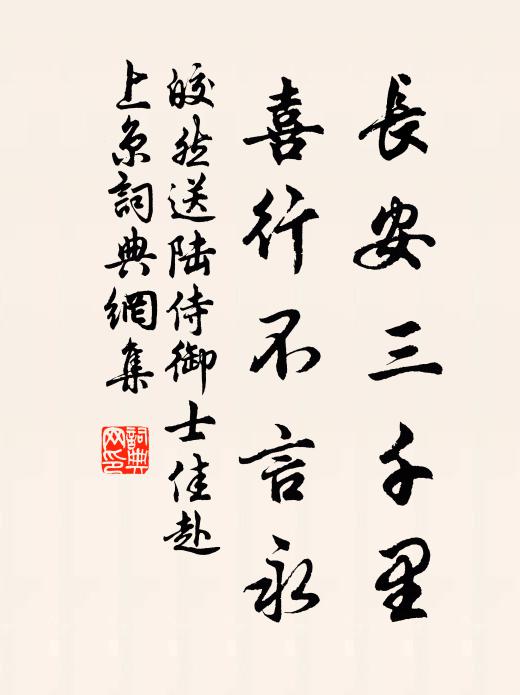 長安三千里
喜行不言永
皎然送陆侍御士佳赴
上京詞典網集
詞典
网印